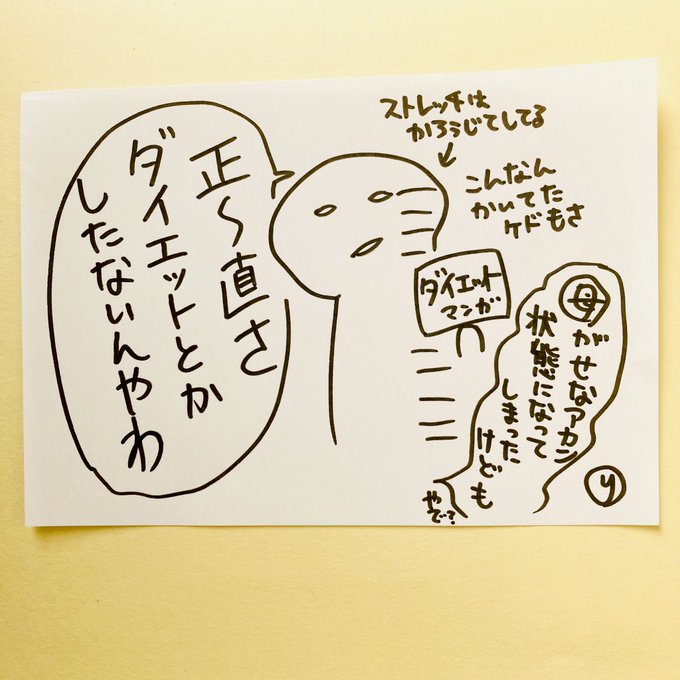 ストレッチは
かろうじてしてる
こんなん
かいてた
ケドもさ
正〜直さ
ダイエットとか
したないんやわ
ダイエット
マンガ
母がせなアカン
状態になって
しまった
けども
やで?
y